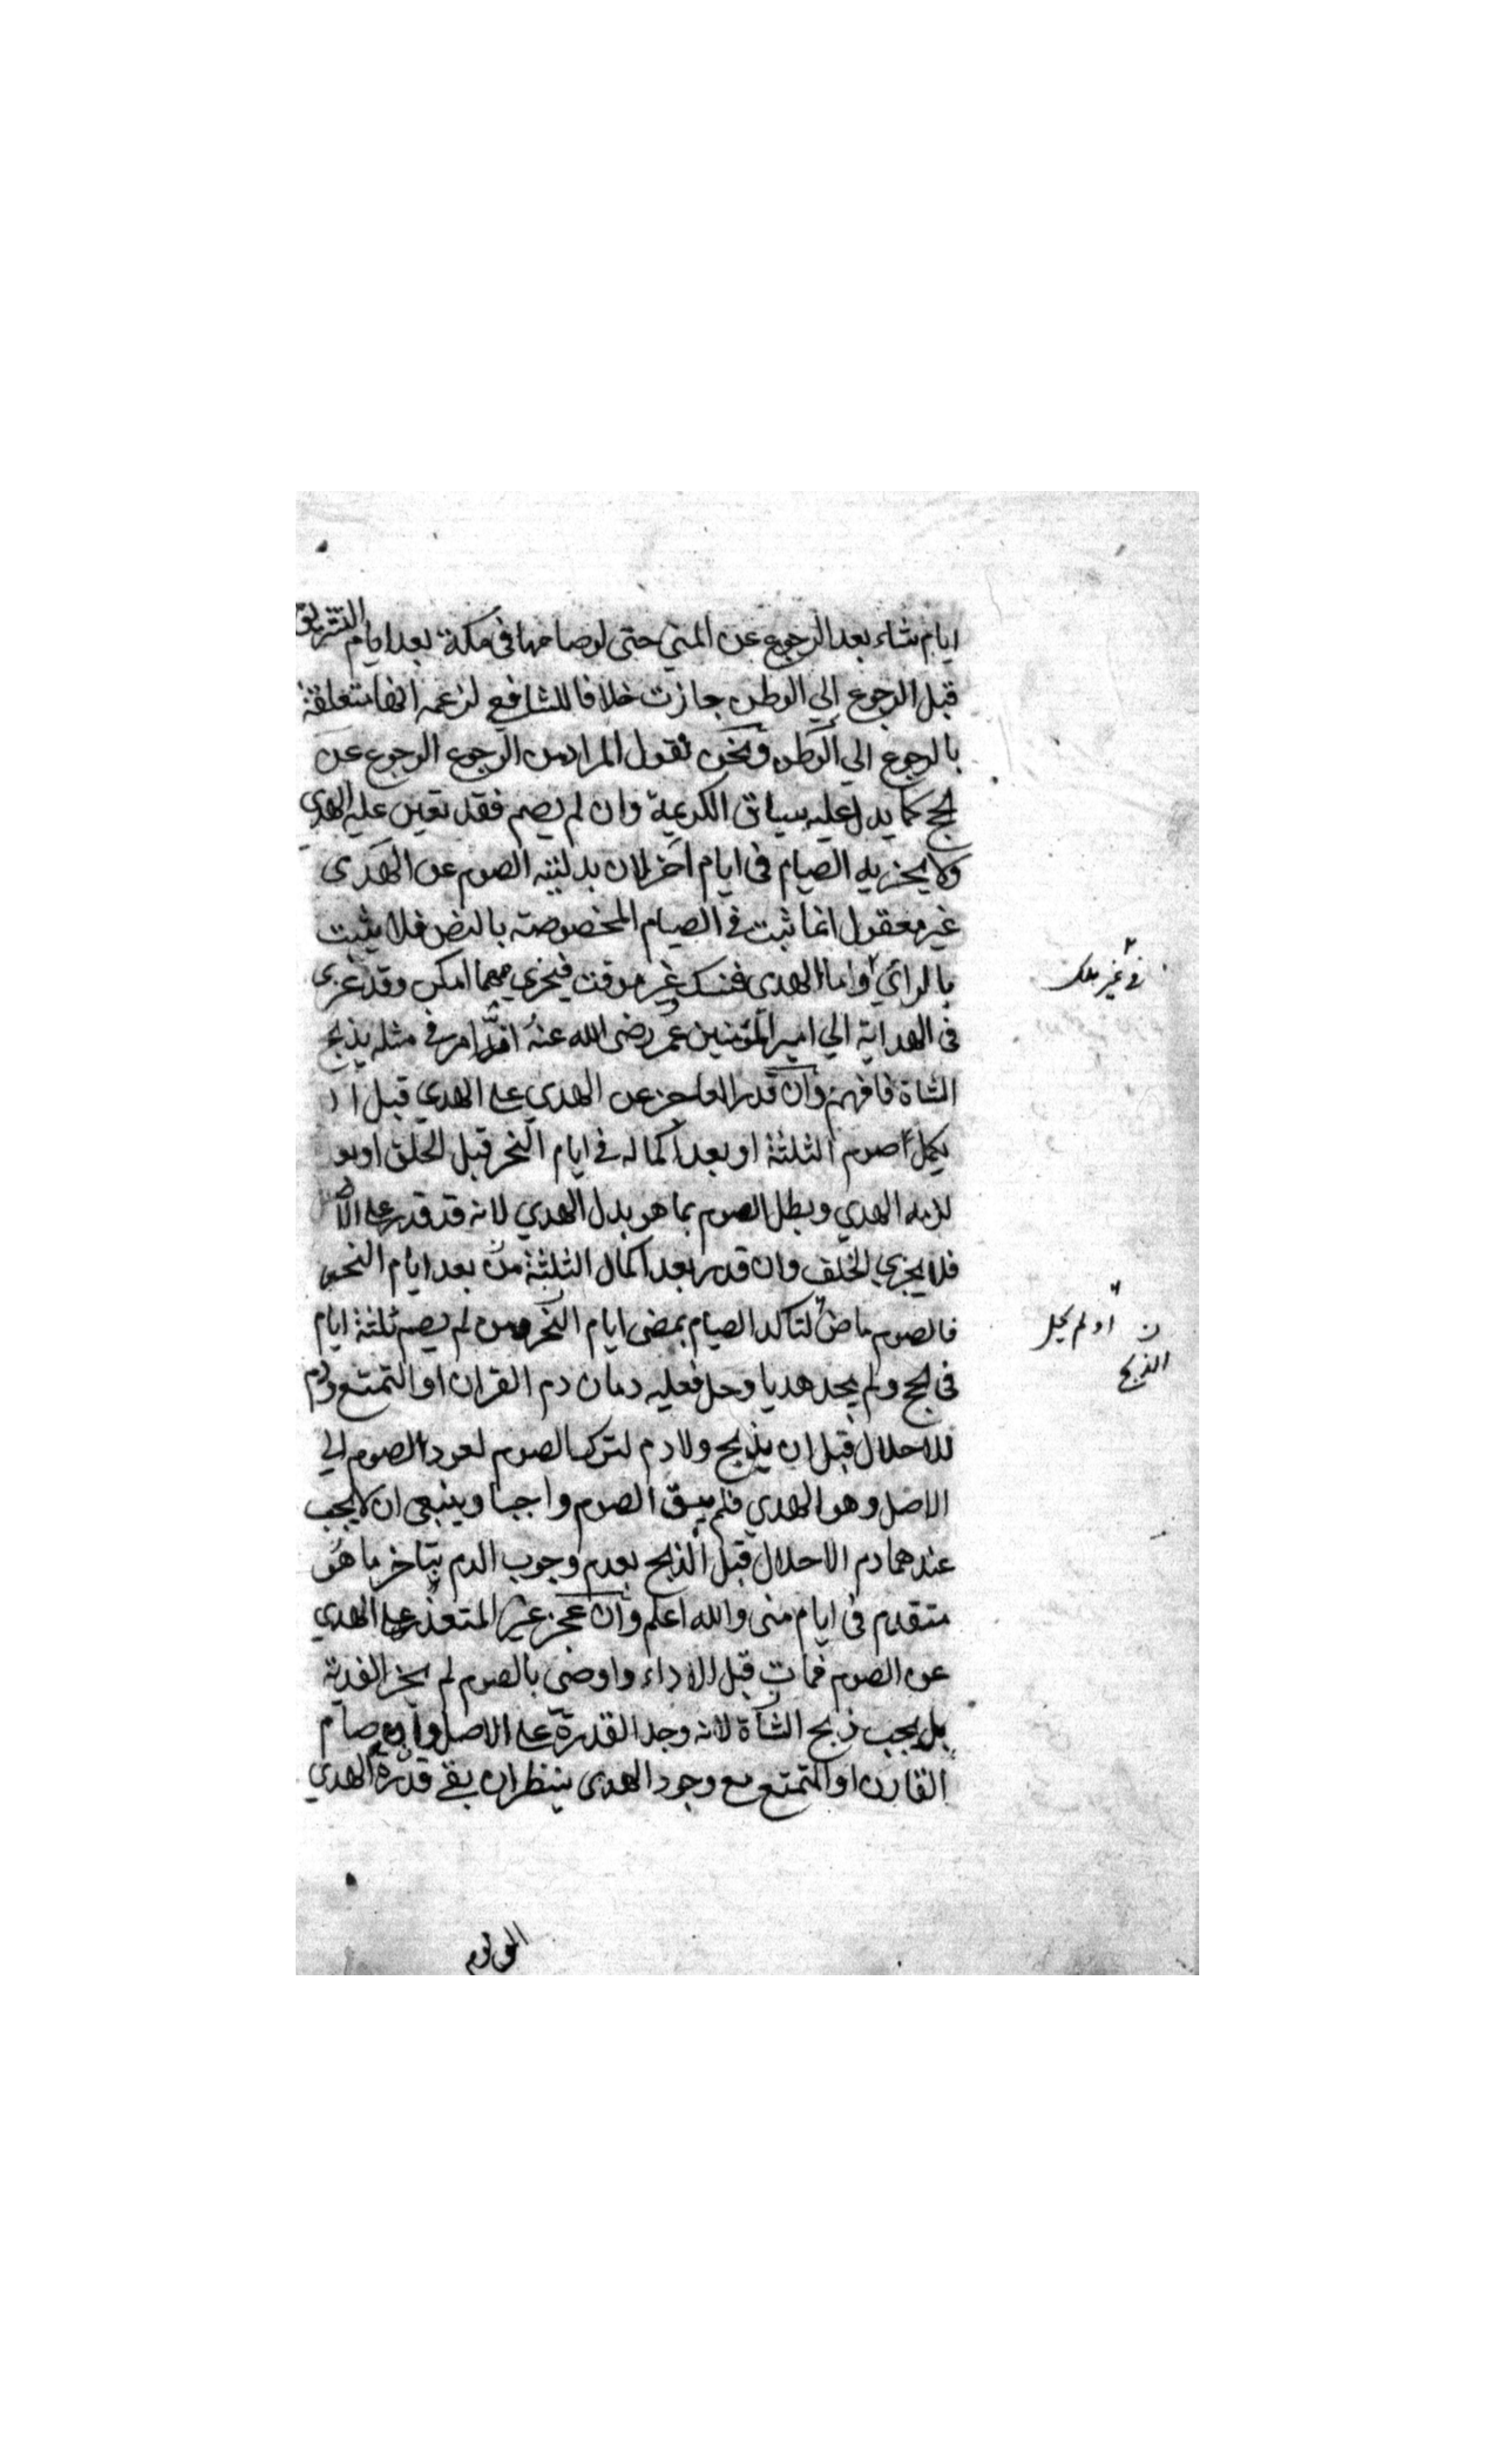 ايام شاء بعد الرجوع عن المني حتى لو صامها في مكة بعد ايام التشريق
قبل الرجوع الي الوطن جازت خلافا للشافعي لزعمه انها متعلقة
بالرجوع الي الوطن ونحن نقول المراد من الرجوع الرجوع عن
الحج كما يدل عليه سياق الكريمة وان لم يصم فقد تعين عليه الهدي
ولا يجزيه الصيام في ايام اخر لان بدليته الصوم عن الهدى
غير معقول انما ثبت في الصيام المخصوصة بالنص فلا يثبت
بالرائي واما الهدي فنسك غير موقت فيجزي مهما امكن وقد عزى
في غير ملك
في الهداية الي امير المؤمنين عمر رضى الله عنه انه امر في مثله يذبح
الشاة فافهم وان قدر العاجز عن الهدي على الهدي قبل ان
يكمل صوم الثلثة او بعد اكماله في ايام النحر قبل الحلق او بعد
لزمه الهدي وبطل الصوم بما هو بدل الهدي لانه قد قدر على الاصل
فلا يجزي الخلف وان قدر بعد اكمال الثلثة من بعد ايام النحر
فالصوم ماض لتاكد الصيام بمضى ايام النحر ومن لم يصم ثلثة ايام
او لم يحل
الذبح
في الحج ولم يجد هديا وحل فعليه دمان دم القران او التمتع ودم
للاحلال قبل ان يذبح ولا دم لترك الصوم لعود الصوم الي
الاصل وهو الهدي فلم يبق الصوم واجبا وينبغي ان لا يجب
عندهما دم الاحلال قبل الذبح بعدم وجوب الدم بتاخر ما هو
متقدم في ايام منى والله اعلم وان عجز غير المتعذر على الهدي
عن الصوم فمات قبل الاداء واوصى بالصوم لم يجز الفدية
بل يجب ذبح الشاة لانه وجد القدرة على الاصل وان صام
القارن او المتمتع مع وجود الهدى ينظر ان بقي قدرة الهدي
الى يوم